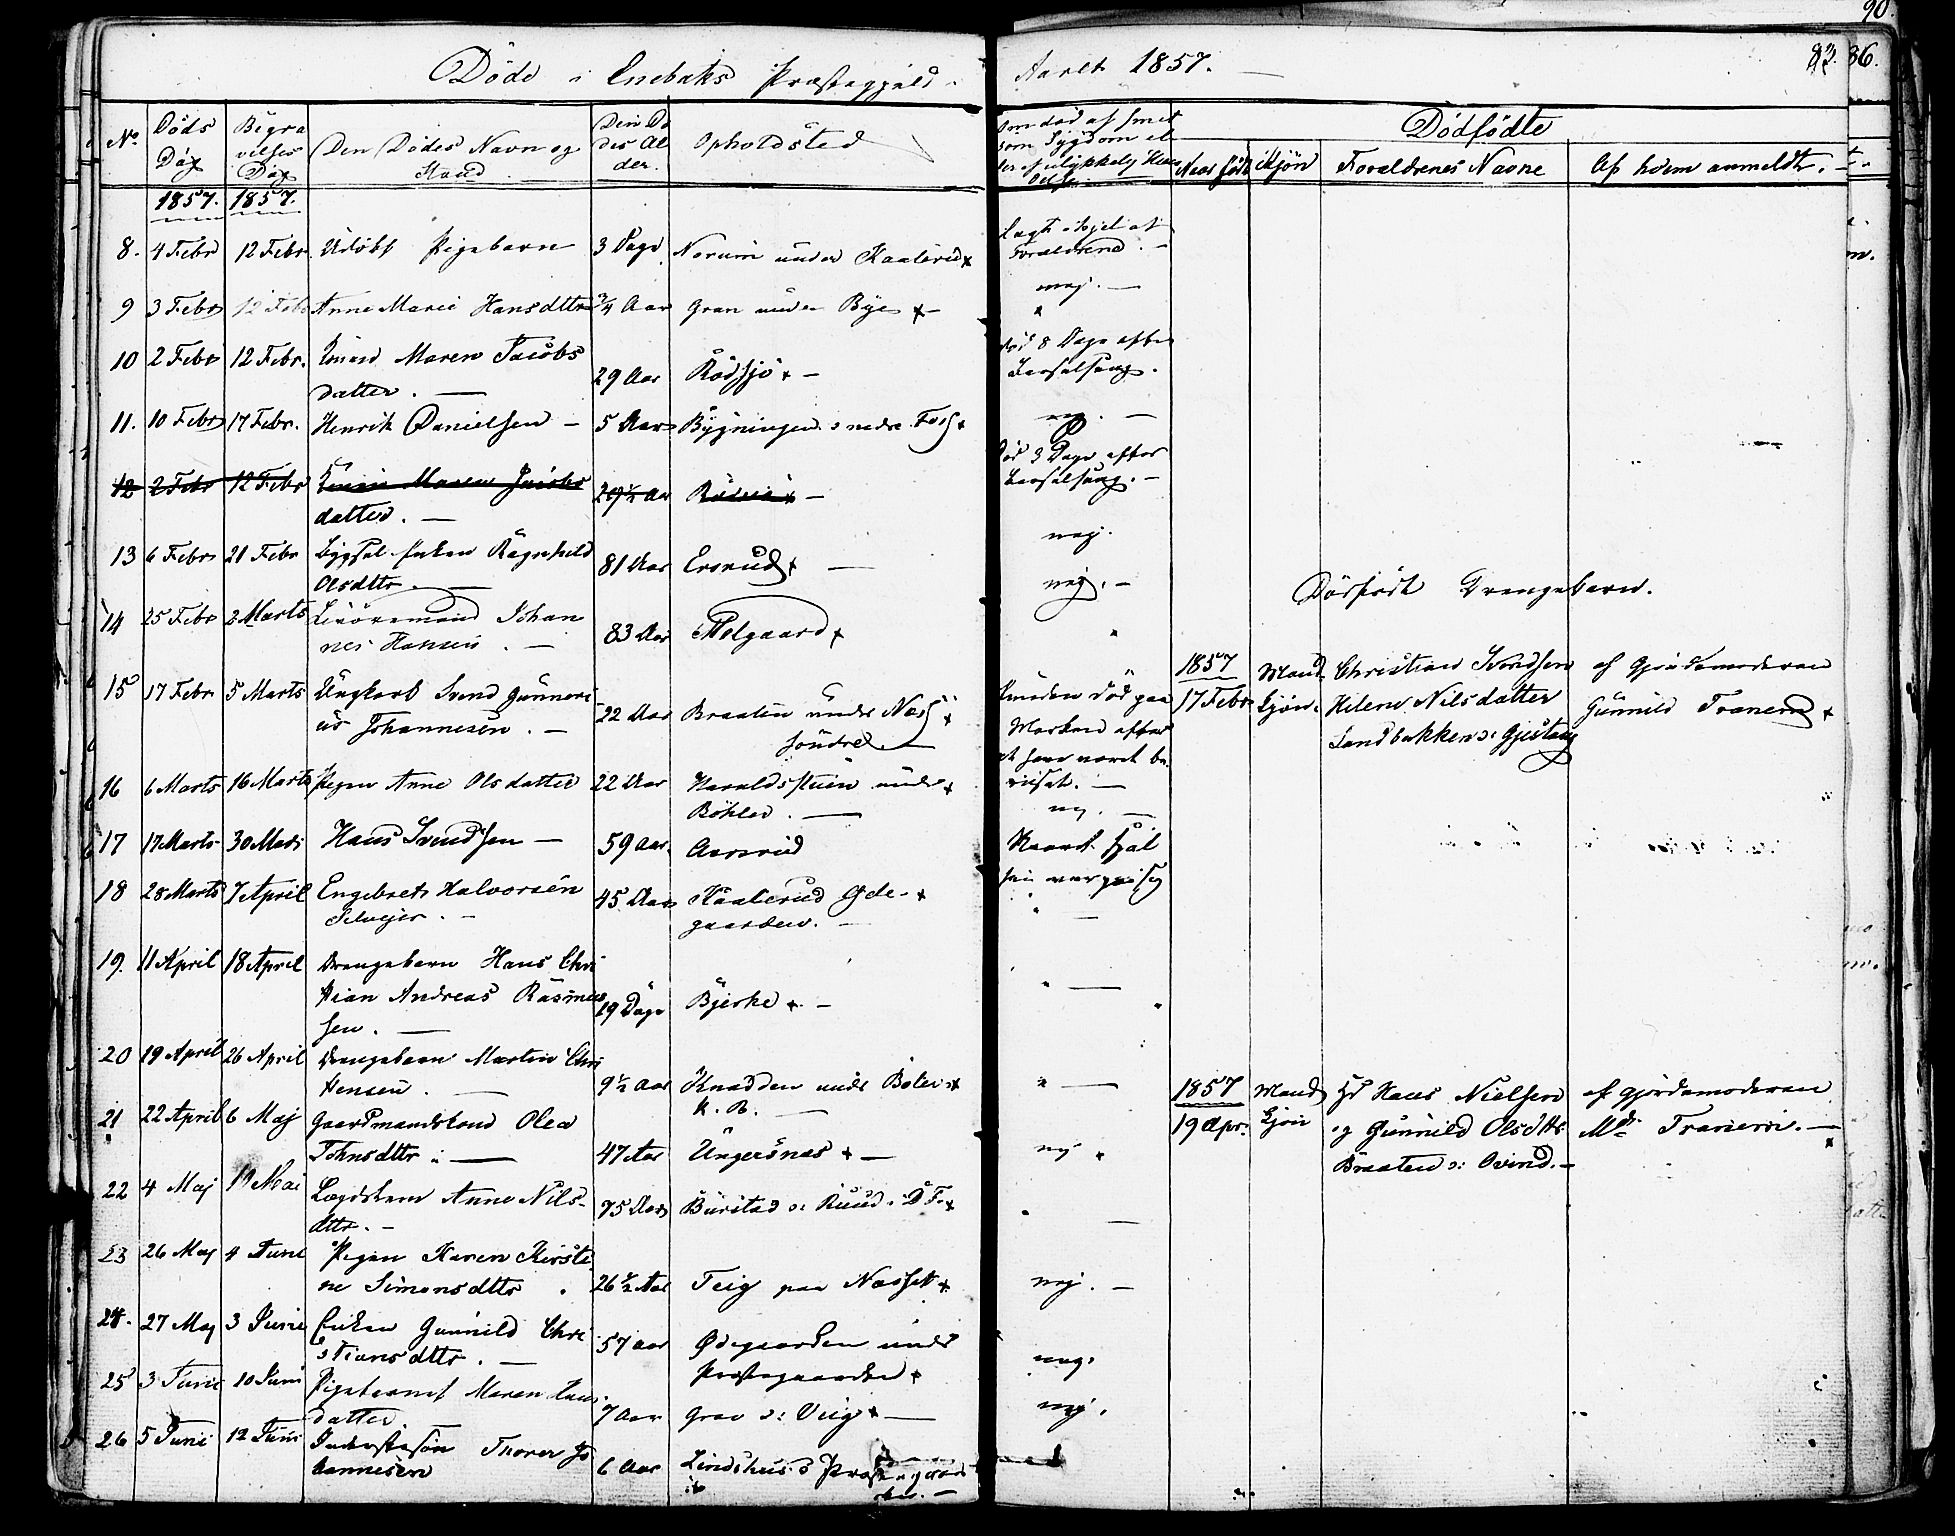 Døde i Enebaks Præstegjeld
Aaret 1857.
90.
36.
No
Døds Dag
Begravelses Dag
Den Dødes Navn og Stand
Den Dødes Alder.
Opholdsted
Om død af
som Sygdom el
Dødfødte
Naar født
Kjøn
Forældrenes Navne
Af hvem anmeldt.
1857. 1857.
8. 4 Febr 12 Febr. Udøbt Pigebarn 3 Dage Norum under Kaalerud
Lagt ihjel af
Forældrene.
9 3 Febr 12 Febr Anne Marie Hansdttr 3/4 Aar Gran under Bye
nej.
10 2 Febr 12 Febr. Maren Jacobs
datter. 29 Aar Rødsjø
død 8 Dage efter
Barselseng.
11. 10 Febr 17 Febr. Henrik Danielsen 5 Aar Bygningen nedre Foss
nej.
12 2 Febr 12 Febr Maren Jacobs
datter. 29 1/2 Aar
Død 3 Dage efter
Barselseng.
13 6 Febr 21 Febr Enken Ragnhild
Olsdttr. 81 Aar Ersrud
nej.
14 25 Febr 2 Marts Livøremand Johan
nes Hansen. 83 Aar Melgaard
nej.
Dødfødt Drengebarn.
15 17 Febr 5 Marts Ungkarl Svend Gunneri
us Johannesen. 22 Aar Braaten under Næss
søndre
funden død paa
Marken efter
at have været be
ruset.
1857
17 Febr
Mand
kjøn.
Christian Svendsen
Helene Nilsdatter
Sandbakken u: Gjestang
af Gjordemoderen
Gunnild Tranem
16 6 Marts 16 Marts Pigen Anne Olsdatter 22 Aar Haraldsstuen under
Bøhler.
nej.
17 17 Marts 30 Marts Hans Svendsen 59 Aar. Aarsrud
18 28 Marts 7 April Engebret Halvorsen
Selvejer. 45 Aar Kaalerud Øde-
gaarden.
19. 11 April 18 April Drengebarn Hans Chri
stian Andreas Rasmus
sen. 19 Dage Bjerke
20 19 April 26 April Drengebarn Martin Chri
stensen. 9 1/2 Aar Knadden under Bøler
K. R.
1857
19 Apr.
Mand
Kjøn
Hans Nielsen
og Gunnild Olsdttr
Braaten u: Ovind.
af Gjordemoderen
Mdm Tranem.
21 22 April 6 Maj Gaardmandskone Olea
Johnsdttr 47 Aar Ungersnæs
nej
22 4 Maj 19 Mai Lægdslem Anne Nils-
dttr. 75 Aar Burstad u: Ruud
23 26 Maj 4 Juni Pigen Karen Kirsti
ne Simensdttr 26 1/2 Aar Teig paa Næsset
nej.
24. 27 Maj 3 Juni Enken Gunnild Chri
stiansdttr. 57 Aar Ødegaarden under
Præstegaarden
nej.
25 3 Juni 10 Juni Pigebarnet Maren
datter. 7 Aar Grav u: Veig
nej.
26 5 Juni 12 Juni Inderstesøn Thorer Jo
hannesen 6 Aar Lindshus